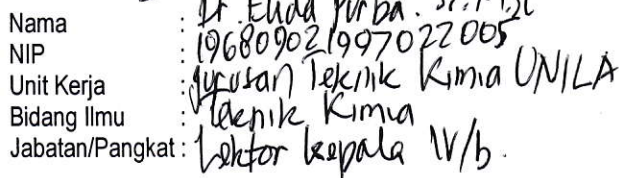 Nama : Dr. Elida Purba. ST. M.Sc
NIP : 196809021997022005
Unit Kerja : Jurusan Teknik Kimia UNILA
Bidang Ilmu : Teknik Kimia
Jabatan/Pangkat : Lektor kepala IV/b.